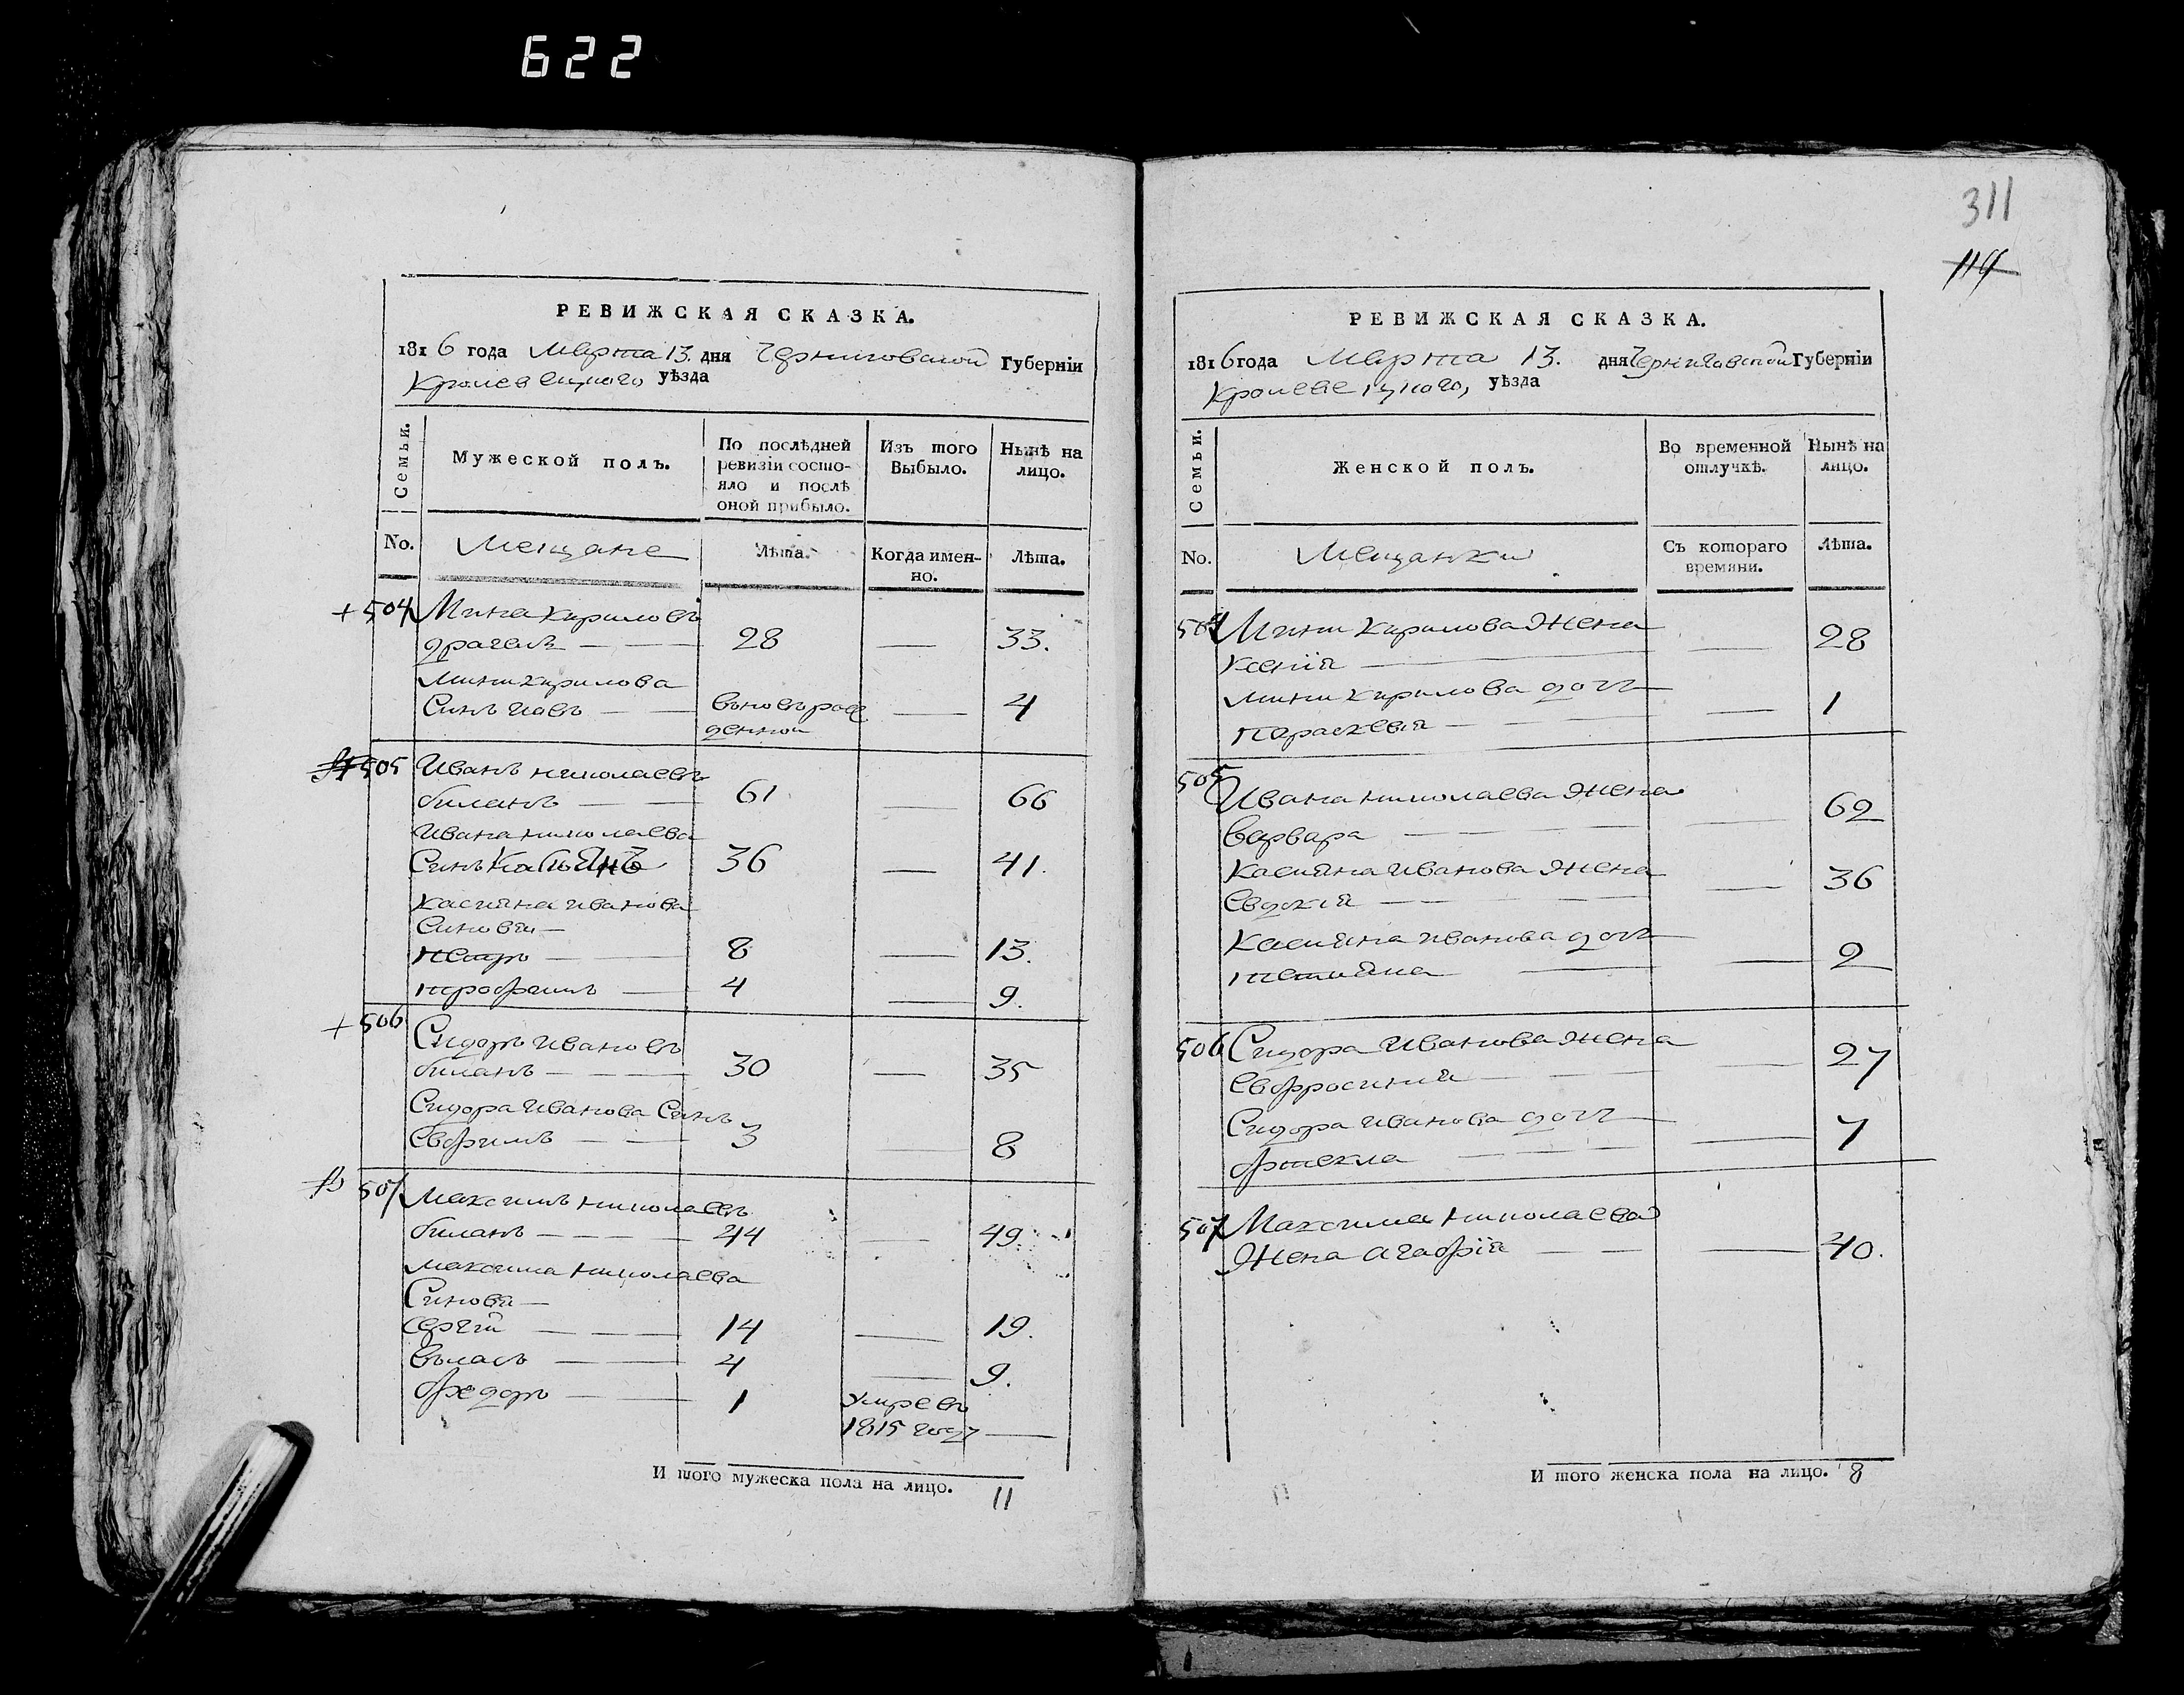 622
РЕВИЖСКАЯ СКАЗКА.
1816 года Марта 13. дня Черниговской Губерніи
Кролевецкого уѣзда
Семьи.
Мужеской полъ.
По послѣдней
ревизіи состо-
яло и послѣ
оной прибыло.
Изъ того
Выбыло.
Нынѣ на
лицо.
No.
Мещане
Лѣта.
Когда имен-
но.
Лѣта.
+504 Мина Кириловъ
28 33.
Мини Кирилова
Синъ Иовъ вновь рож 4
денной
505 Иванъ Николаевъ
биланъ 61 66
Ивана Николаева
Синъ Касиянъ 36 41.
Касияна Иванова
Синовя
Петръ 8 13.
Трофимъ 4 9.
+506 Сидоръ Ивановъ
биланъ 30 35
Сидора Иванова Синъ
Евфимъ 3 8
507 Максимъ Николаевъ
биланъ 44 49.
Максима Николаева
Синовя
Сергій 14 19.
Власъ 4 9.
Федоръ 1 Умре въ
1815 году
И того мужеска пола на лицо. 11
311
119
РЕВИЖСКАЯ СКАЗКА.
1816 года Марта 13. дня Черниговской Губерніи
Кролевецкого, уѣзда
Семьи.
Женской полъ.
Во временной
отлучкѣ.
Нынѣ на
лицо.
No.
Мещанки
Съ котораго
времяни.
Лѣта.
504 Мини Кирилова Жена
Ксенія 28
Мини Кирилова дочь
Параскевія 1
505 Ивана Николаева Жена
Варвара 62
Касияна Иванова Жена
Евдокія 36
Касияна Иванова дочь
Тетияна 2
506 Сидора Иванова Жена
Евфросинія 27
Сидора Иванова дочь
Фтекла 7
507 Максима Николаева
Жена Агафія 40.
И того женска пола на лицо. 8